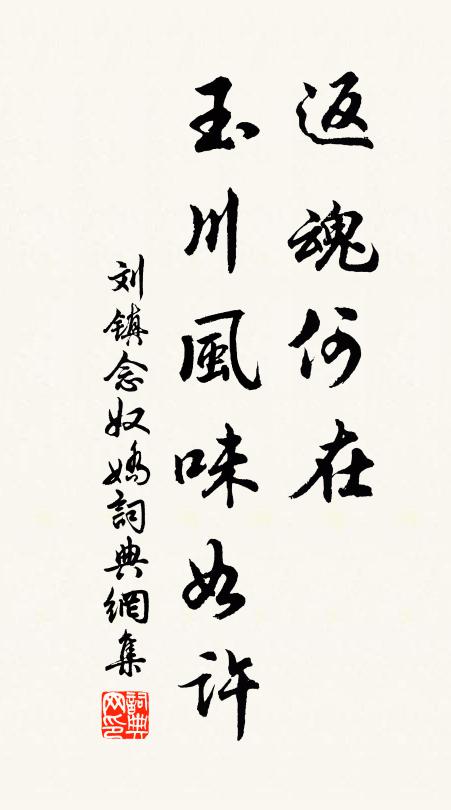 返魂何在
玉川風味如許
刘镇念奴嬌詞典網集
詞典网印